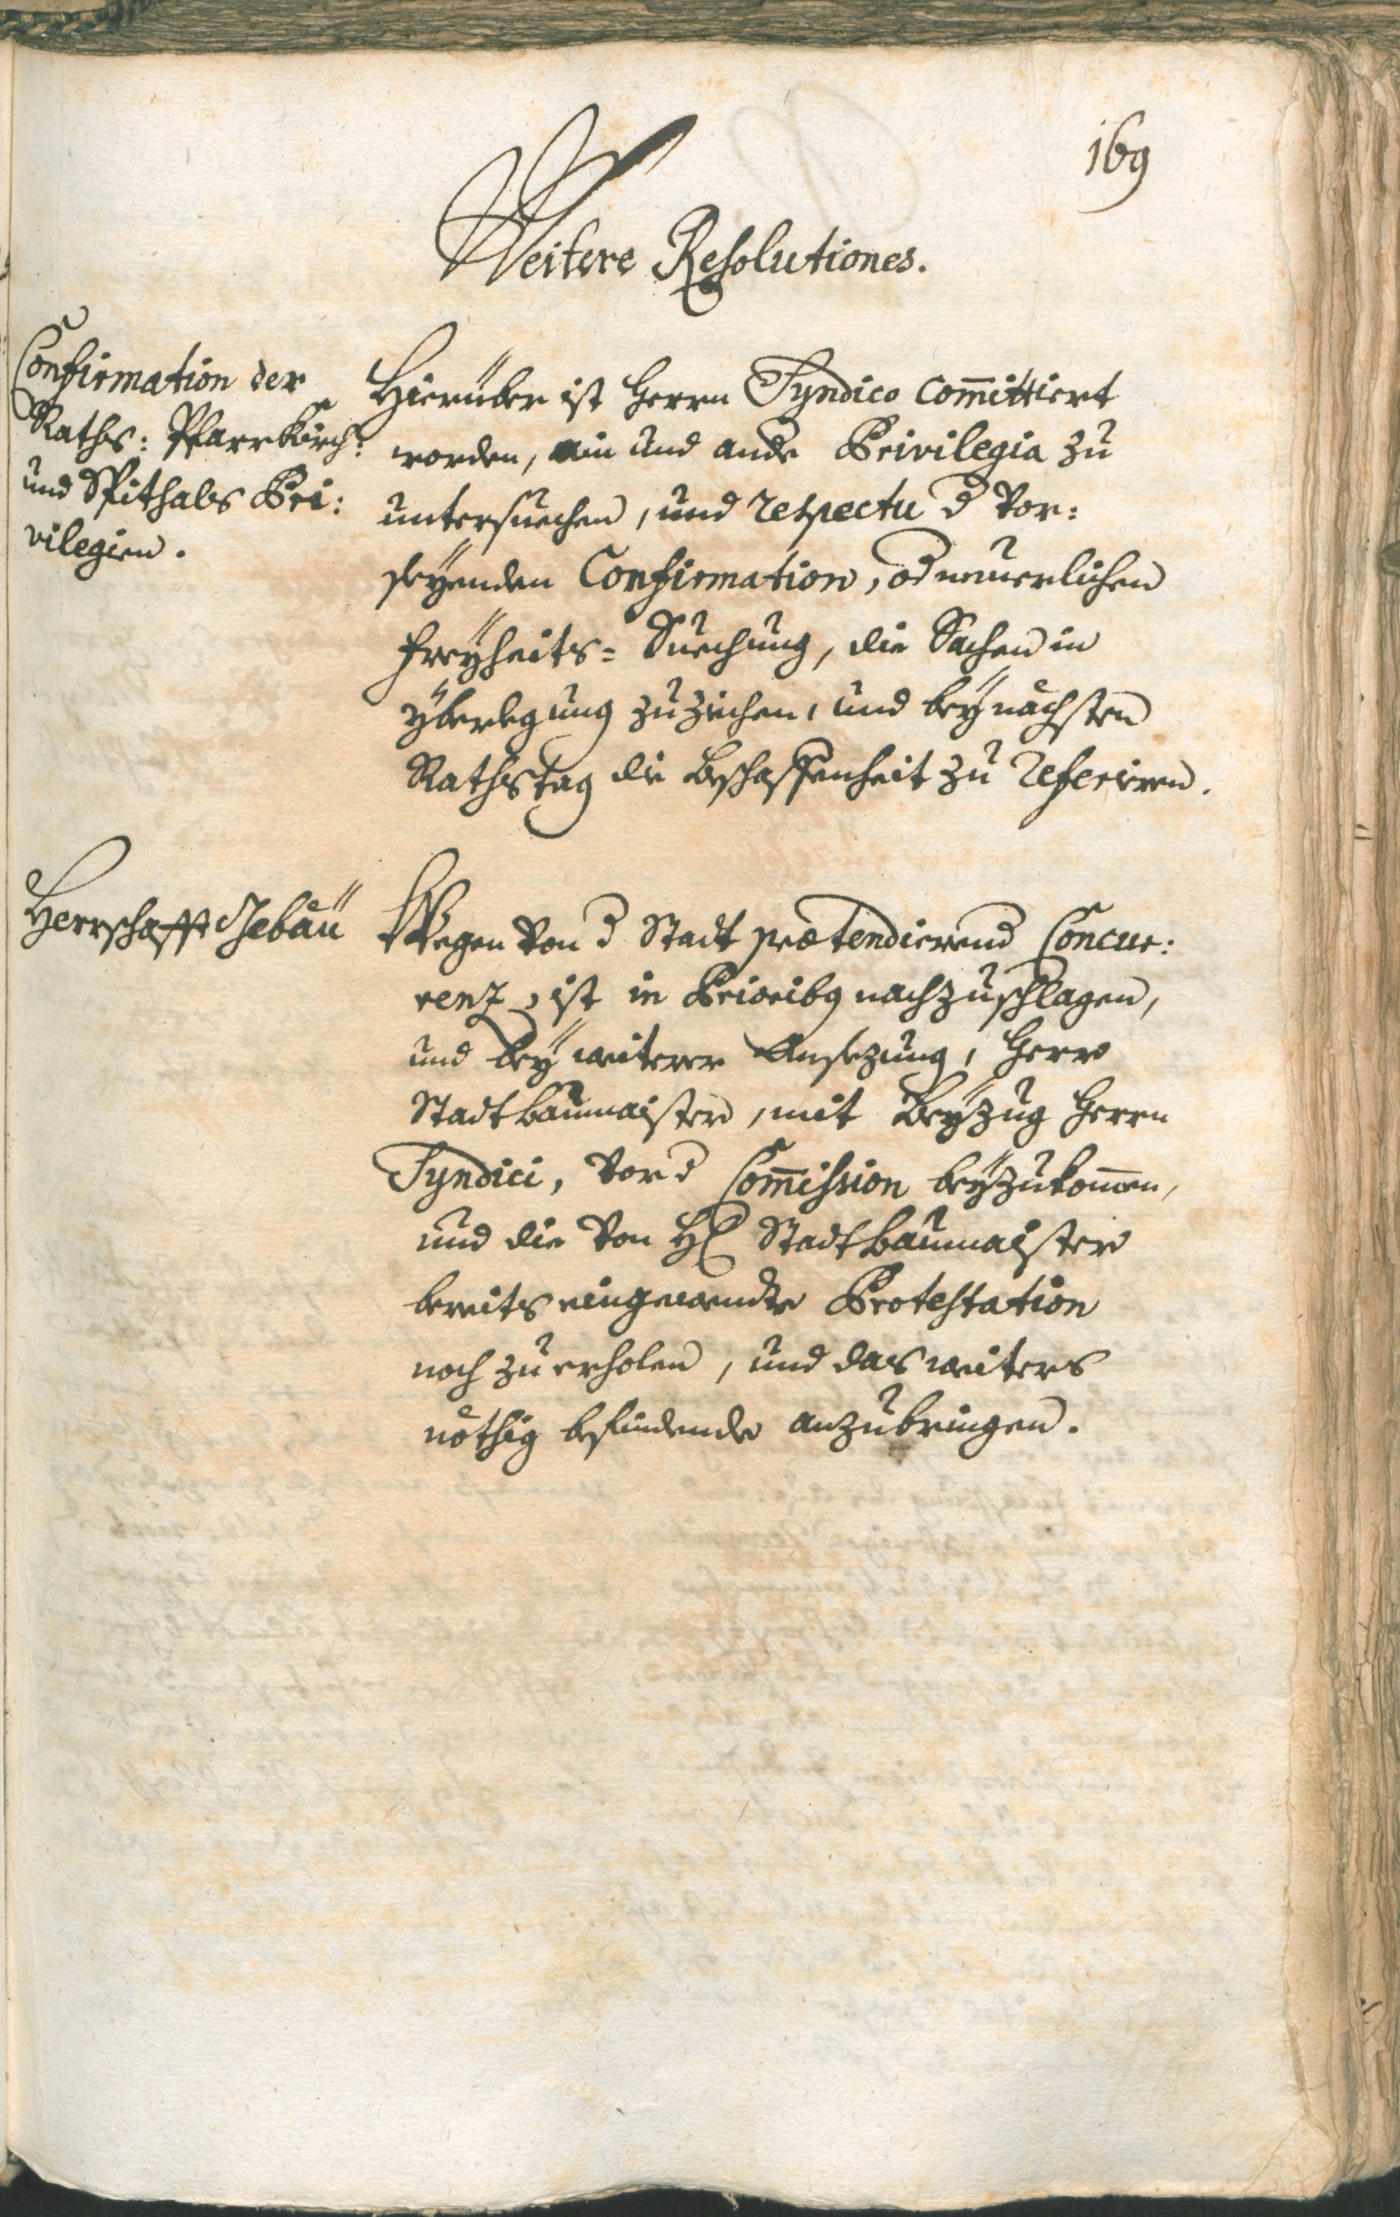 169
Weitere Resolutiones.
Confirmation der
Raths: Pfarrkürch:
und Spithals Pri:
vilegien.
Hierüber ist herrn Syndico Com̄ittiert
worden, ain und ande Privilegia zu
untersuechen, und respectu d Vor:
seyenden Confirmation, od neuerlichen
freyheits= Suechung, die Sachen in
yberlegung zu ziehen, und bey nächsten
Rathstag die beschaffenheit zu referiren.
Herrschafft Gebäu
Wegen von d Stadt prætendierend Concur:
renz, ist in Prioribg nachzuschlagen,
und bey weiterer Ansezung, herr
Stadtbaumaister, mit beyzug herrn
Syndici, vor d Com̄ission beyzukom̄en,
und die von H Stadtbaumaister
bereits eingewendte Protestation
noch zu erholen, und das weiters
nöthig befindende anzubringen.